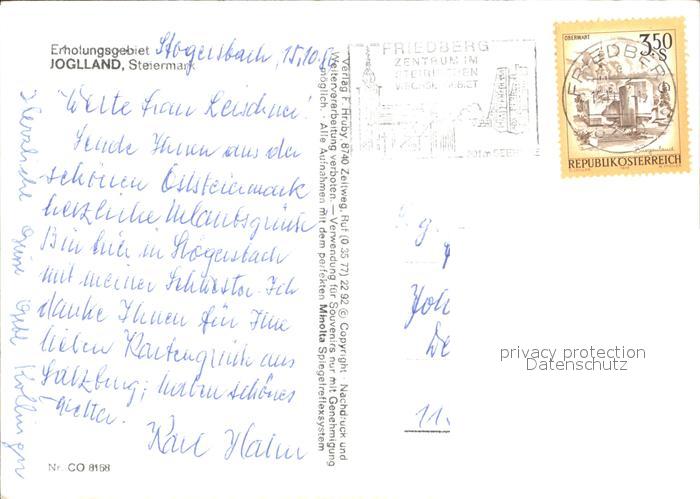 Erholungsgebiet
JOGLLAND, Steiermark
Stögersbach, 15.10.
Werte Frau
Sende Ihnen aus der
schönen Oststeiermark
herzliche Urlaubsgrüße
Bin hier in Stögersbach
mit meiner Schwester. Ich
danke Ihnen für Ihre
lieben Kartengrüße aus
Salzburg; haben schönes
Wetter.
Karl Hahn
Herzliche Grüße
Nr. CO 8168
Verlag F. Hruby, 8740 Zeltweg, Ruf (0 35 77) 22 92 © Copyright · Nachdruck und
Weiterverarbeitung verboten. — Verwendung für Souvenirs nur mit Genehmigung
möglich. · Alle Aufnahmen mit dem perfekten Minolta Spiegelreflexsystem
FRIEDBERG
ZENTRUM IM
STEIRISCHEN
WECHSELGEBIET
OBERWART
3.50
S
FRIEDBERG
REPUBLIK ÖSTERREICH
11.
privacy protection
Datenschutz